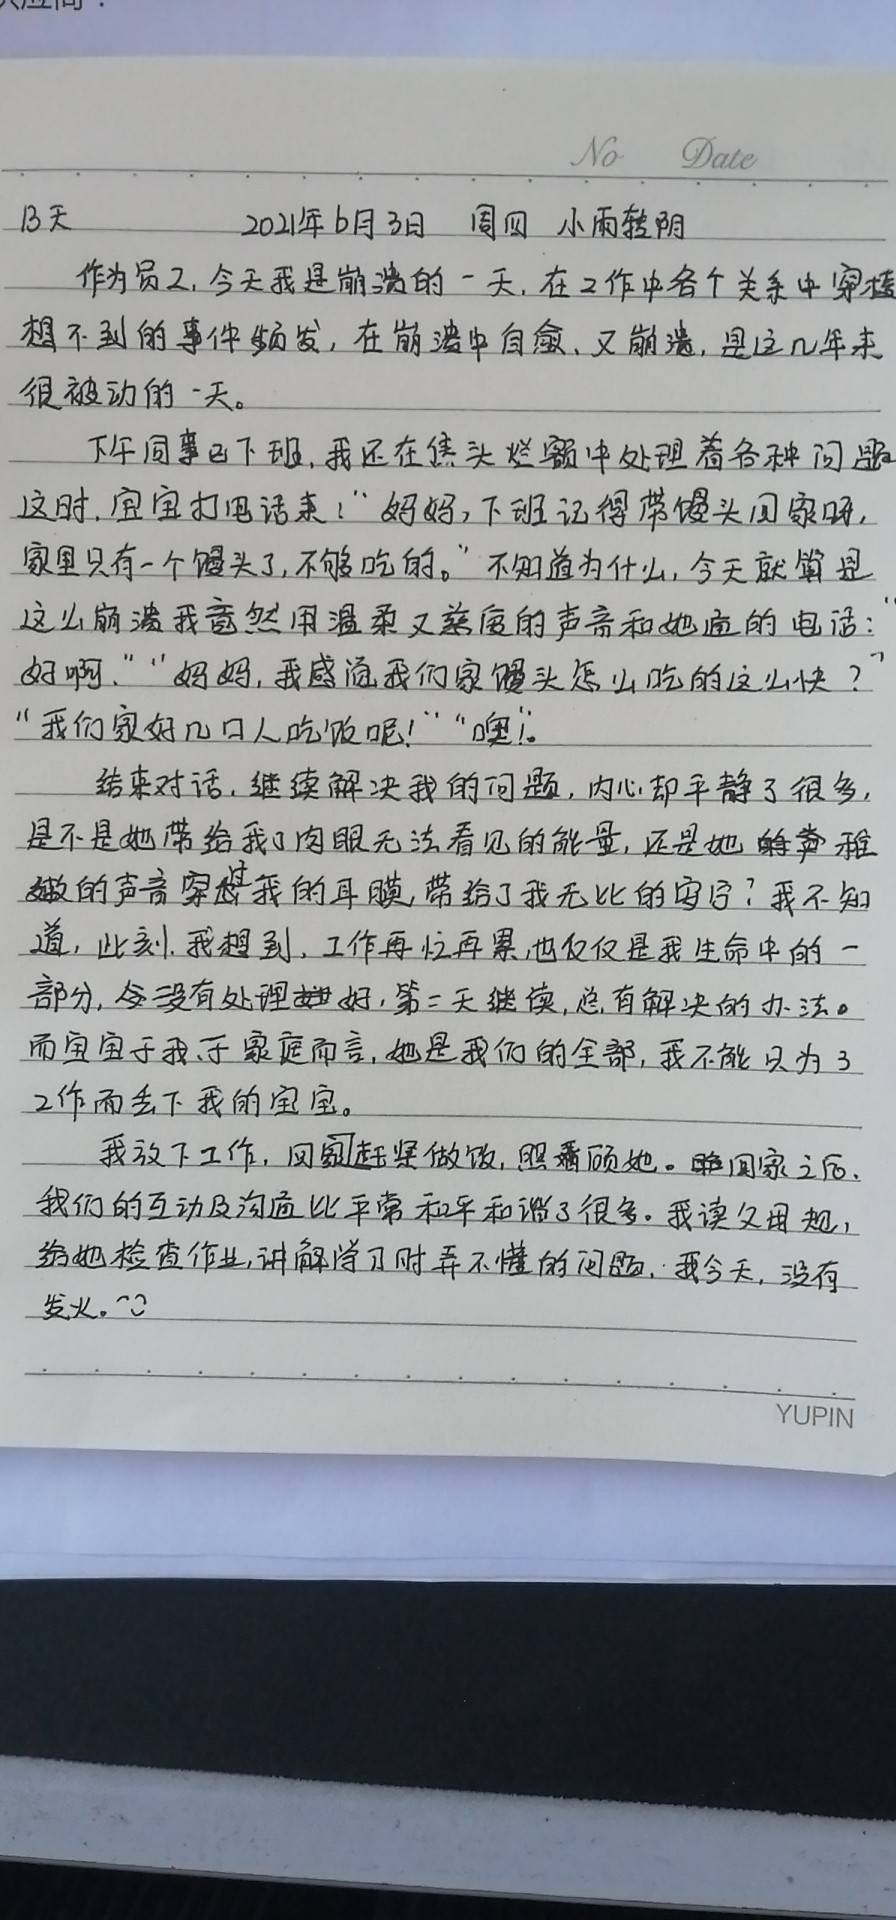 供应商：
No Date
13天 2021年6月3日 周四 小雨转阴
作为员工,今天我是崩溃的一天,在工作中各个关系中穿梭
想不到的事件频发,在崩溃中自愈、又崩溃,是这几年来
很被动的一天。
下午同事已下班,我还在焦头烂额中处理着各种问题
这时,宝宝打电话来:“妈妈,下班记得带馒头回家呀,
家里只有一个馒头了,不够吃的。”不知道为什么,今天就算是
这么崩溃我竟然用温柔又慈爱的声音和她通的电话:“
好啊.”“妈妈,我感觉我们家馒头怎么吃的这么快?”
“我们家好几口人吃饭呢!”“噢!”。
结束对话,继续解决我的问题,内心却平静了很多,
是不是她带给我了肉眼无法看见的能量,还是她 稚
嫩的声音穿过我的耳膜,带给了我无比的安宁?我不知
道,此刻.我想到,工作再忙再累,也仅仅是我生命中的一
部分,今没有处理好,第二天继续,总有解决的办法。
而宝宝于我、于家庭而言,她是我们的全部,我不能只为了
工作而丢下我的宝宝。
我放下工作,回家赶紧做饭,照顾她。回家之后,
我们的互动及沟通比平常和平和谐了很多。我读父母规,
给她检查作业,讲解学习时弄不懂的问题,我今天,没有
发火。
YUPIN